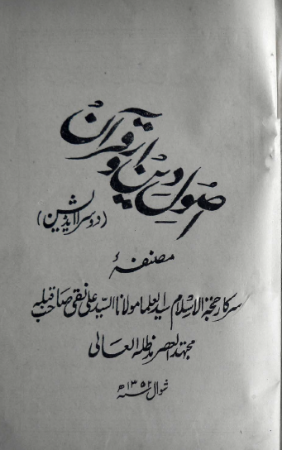 اصول دین از قرآن
(دوسرا ایڈیشن)
مصنفہٗ
سرکار حجۃ الاسلام سید العلما مولانا السید علی نقی صاحب قبلہ
مجتہد العصر مدظلہ العالی
شوال ۱۳۵۲ھ